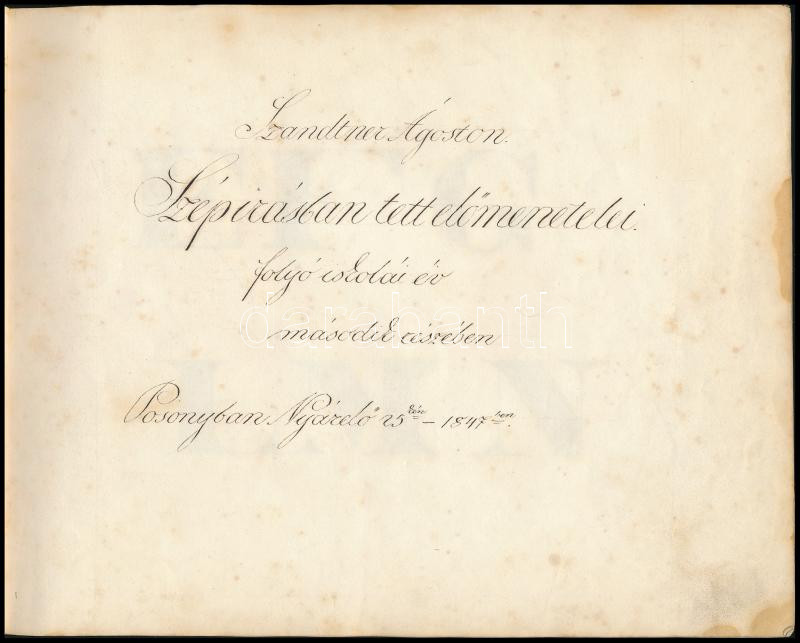 Szandtner Ágoston.
Szépirásban tett előmenetelei.
folyó iskolái év
második részében
darabanth
Posonyban Nyárelő 25kén – 1847ben.